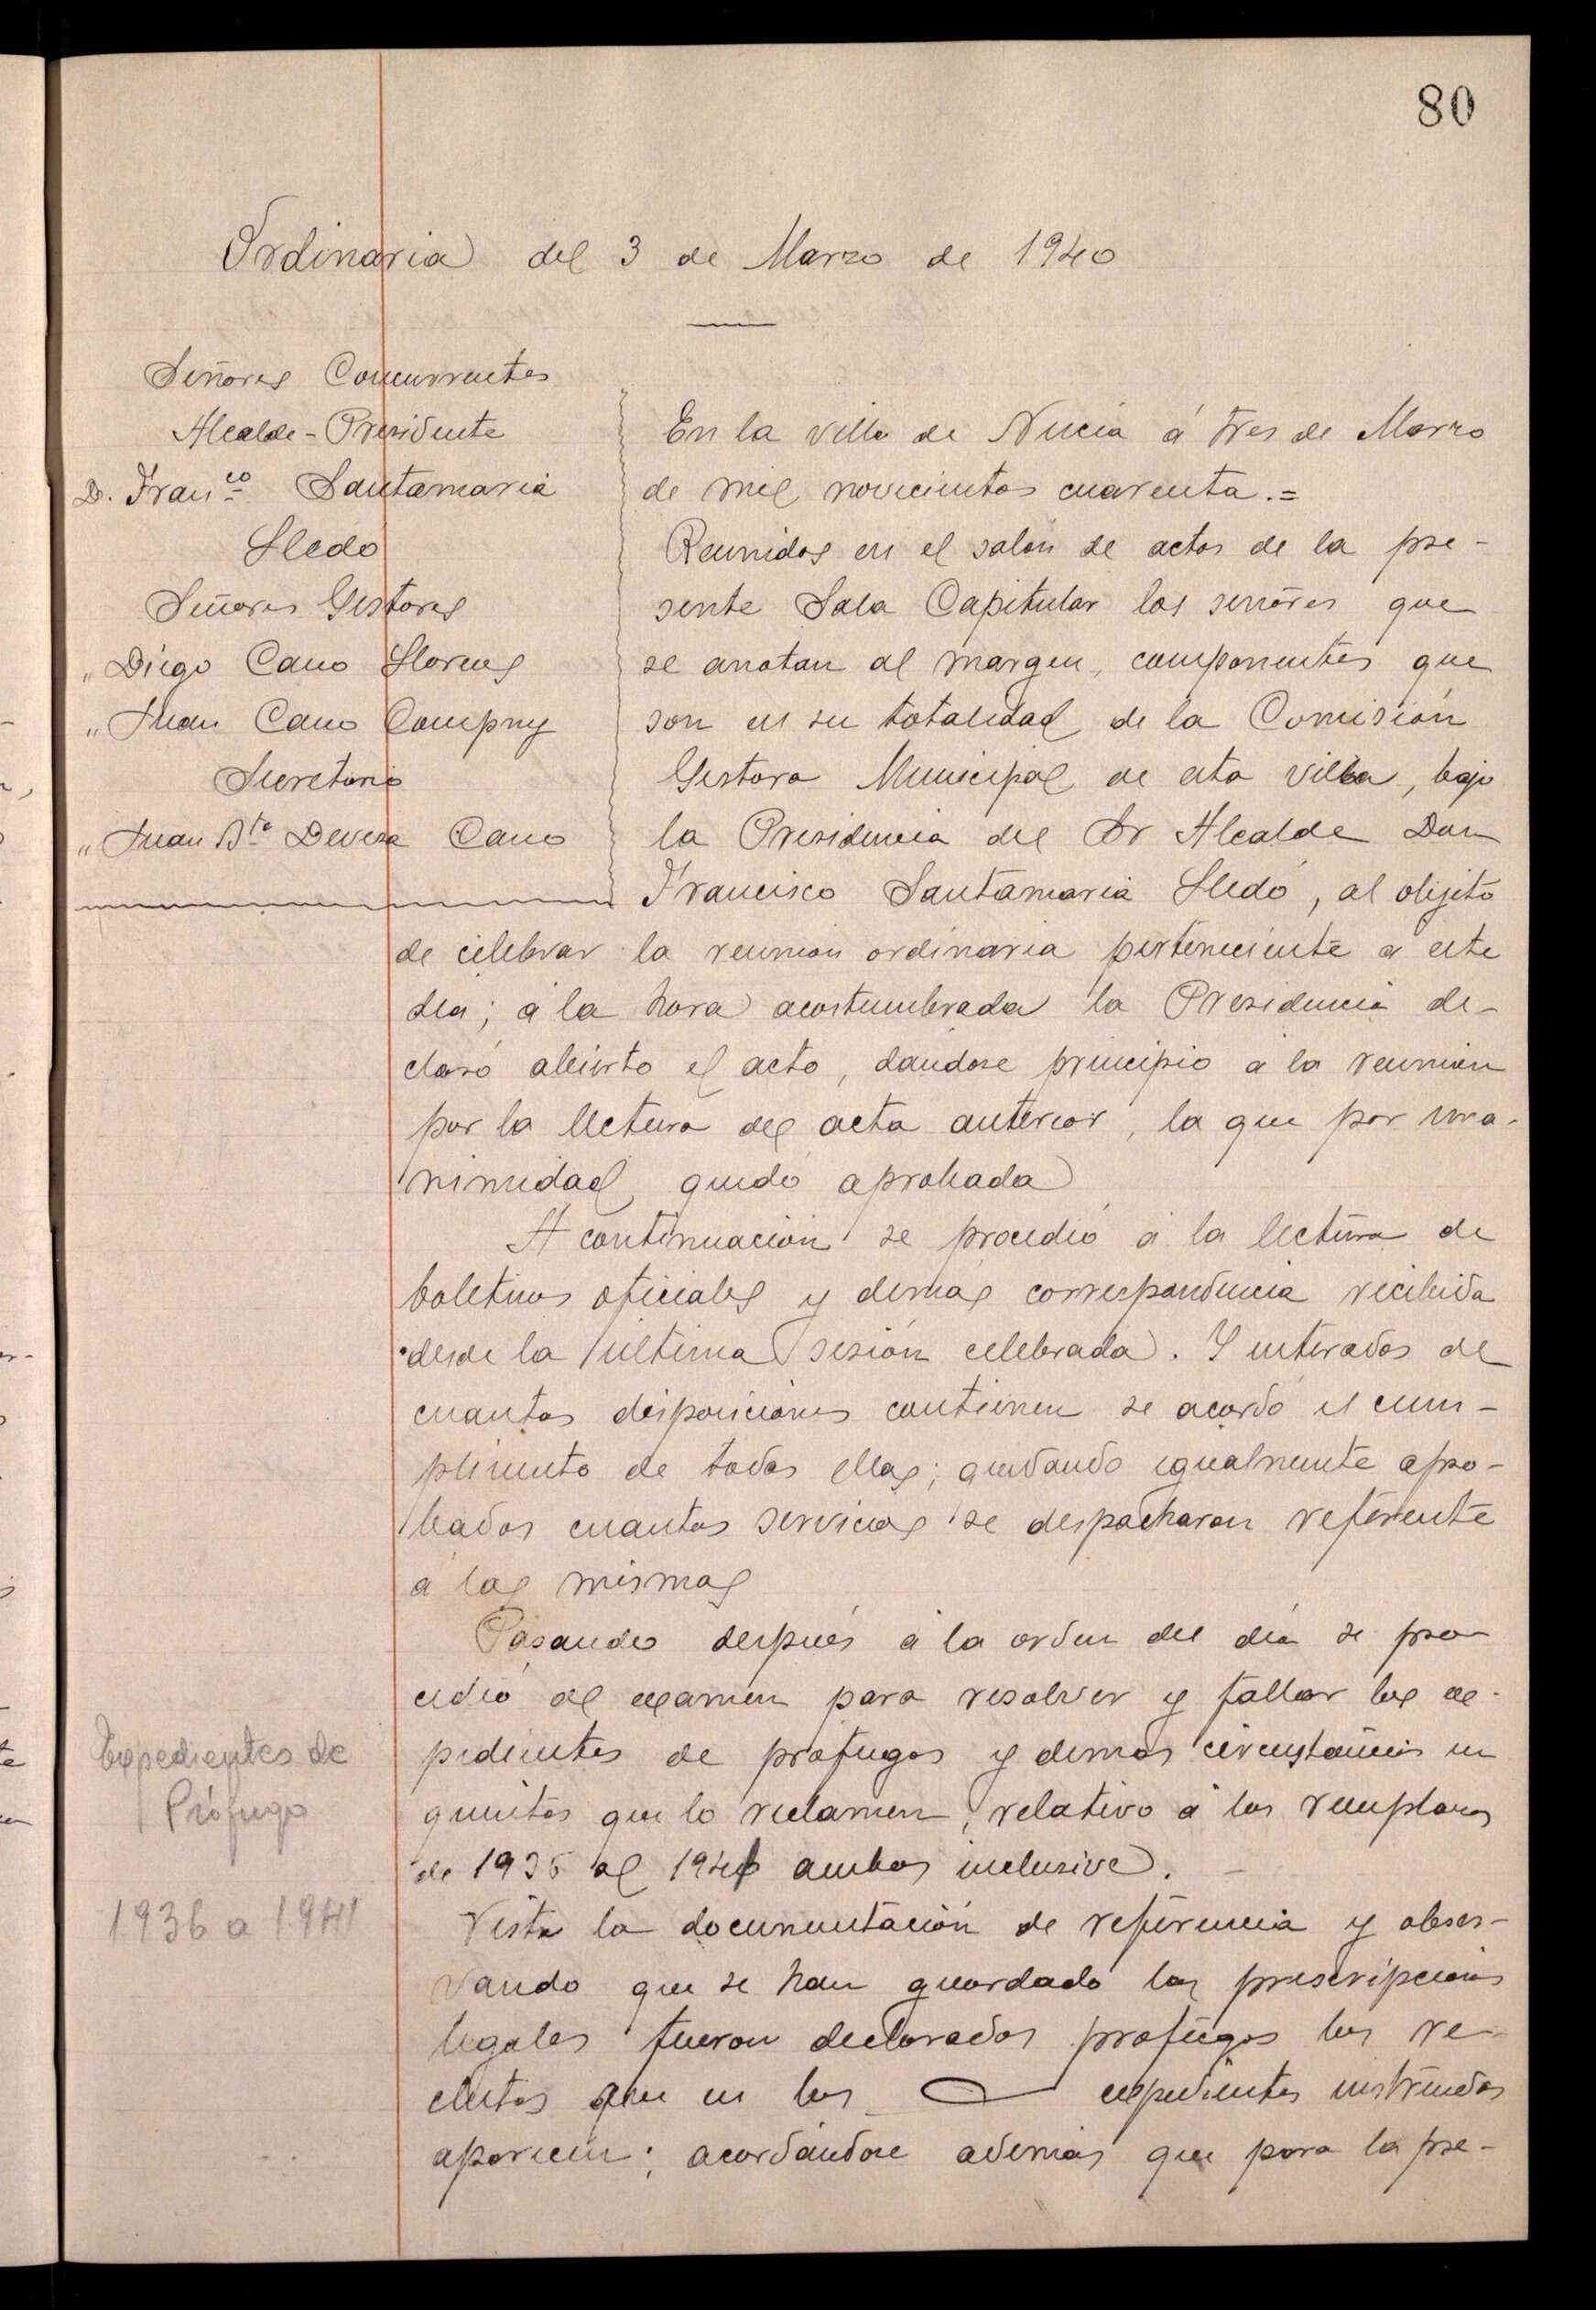 80
Ordinaria del 3 de Marzo de 1940
Señores Concurrentes
Alcalde-Presidente
D. Fran.co Santamaria
Lledó
Señores Gestores
" Diego Cano Llorens
" Juan Cano Compny
Secretario
" Juan Bta Devesa Cano
En la villa de Nucia á tres de Marzo
de mil novecientos cuarenta.=
Reunidos en el salón de actos de la pre-
sente Sala Capitular los señores que
se anotan al margen, componentes que
son en su totalidad de la Comisión
Gestora Municipal de esta villa, bajo
la Presidencia del Sr Alcalde Don
Francisco Santamaria Lledó, al objeto
de celebrar la reunión ordinaria perteneciente a este
dia; á la hora acostumbrada la Presidencia de-
claró abierto el acto, dandose principio a la reunión
por la lectura del acta anterior, la que por una-
nimidad, quedó aprobada
A continuación se procedió á la lectura de
boletines oficiales y demás correspondencia recibida
desde la última sesión celebrada. Y enterados de
cuantas disposiciones contienen se acordó el cum-
plimento de todas ellas; quedando igualmente apro-
bados cuantos servicios se despacharon referente
á las mismas
Pasando después á la orden del día se pro-
cedió al examen para resolver y fallar los ex-
pedientes de prófugos y demás circunstancias en
quintos que lo reclamen, relativo á los reemplazos
de 1936 al 1941 ambos inclusive.
Expedientes de
Prófugo
1936 a 1941
Vista la documentación de referencia y obser-
vando que se han guardado las prescripciones
legales fueron declarados prófugos los re-
clutas que en los expedientes instruidos
aparecen; acordándose además que para la pre-